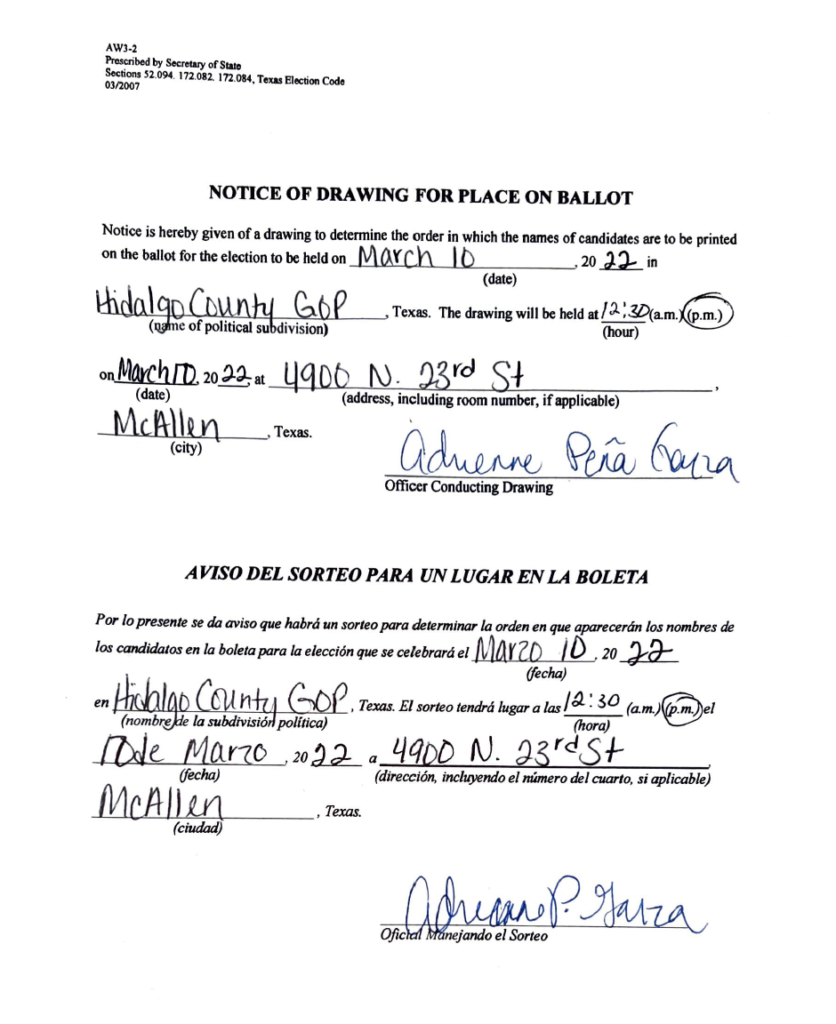 AW3-2
Prescribed by Secretary of State
Sections 52.094. 172.082. 172.084, Texas Election Code
03/2007
NOTICE OF DRAWING FOR PLACE ON BALLOT
Notice is hereby given of a drawing to determine the order in which the names of candidates are to be printed
on the ballot for the election to be held on March 10, 2022 in
(date)
Hidalgo County GOP, Texas. The drawing will be held at 12:30 (a.m.)(p.m.)
(name of political subdivision) (hour)
on March 10, 2022, at 4900 N. 23rd St,
(date) (address, including room number, if applicable)
McAllen, Texas.
(city)
Adrienne Peña Garza
Officer Conducting Drawing
AVISO DEL SORTEO PARA UN LUGAR EN LA BOLETA
Por lo presente se da aviso que habrá un sorteo para determinar la orden en que aparecerán los nombres de
los candidatos en la boleta para la elección que se celebrará el Marzo 10, 2022
(fecha)
en Hidalgo County GOP, Texas. El sorteo tendrá lugar a las 12:30 (a.m.)(p.m.) el
(nombre de la subdivisión política) (hora)
10 de Marzo, 2022 a 4900 N. 23rd St,
(fecha) (dirección, incluyendo el número del cuarto, si aplicable)
McAllen, Texas.
(ciudad)
Adrienne P. Garza
Oficial Manejando el Sorteo